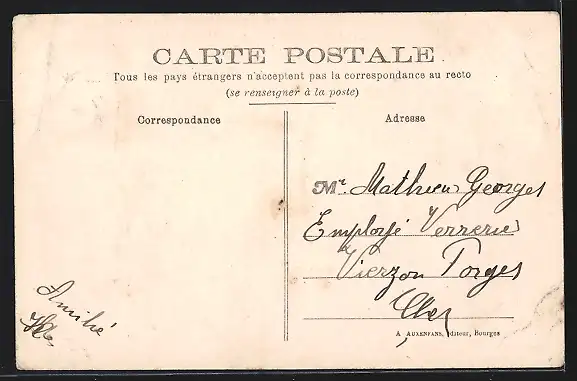 CARTE POSTALE
Tous les pays étrangers n'acceptent pas la correspondance au recto
(se renseigner à la poste)
Correspondance
Adresse
Mr. Mathieu Georges
Employé Verrerie
Vierzon Forges
Cher
Amitié
A. AUXENFANS, Éditeur, Bourges